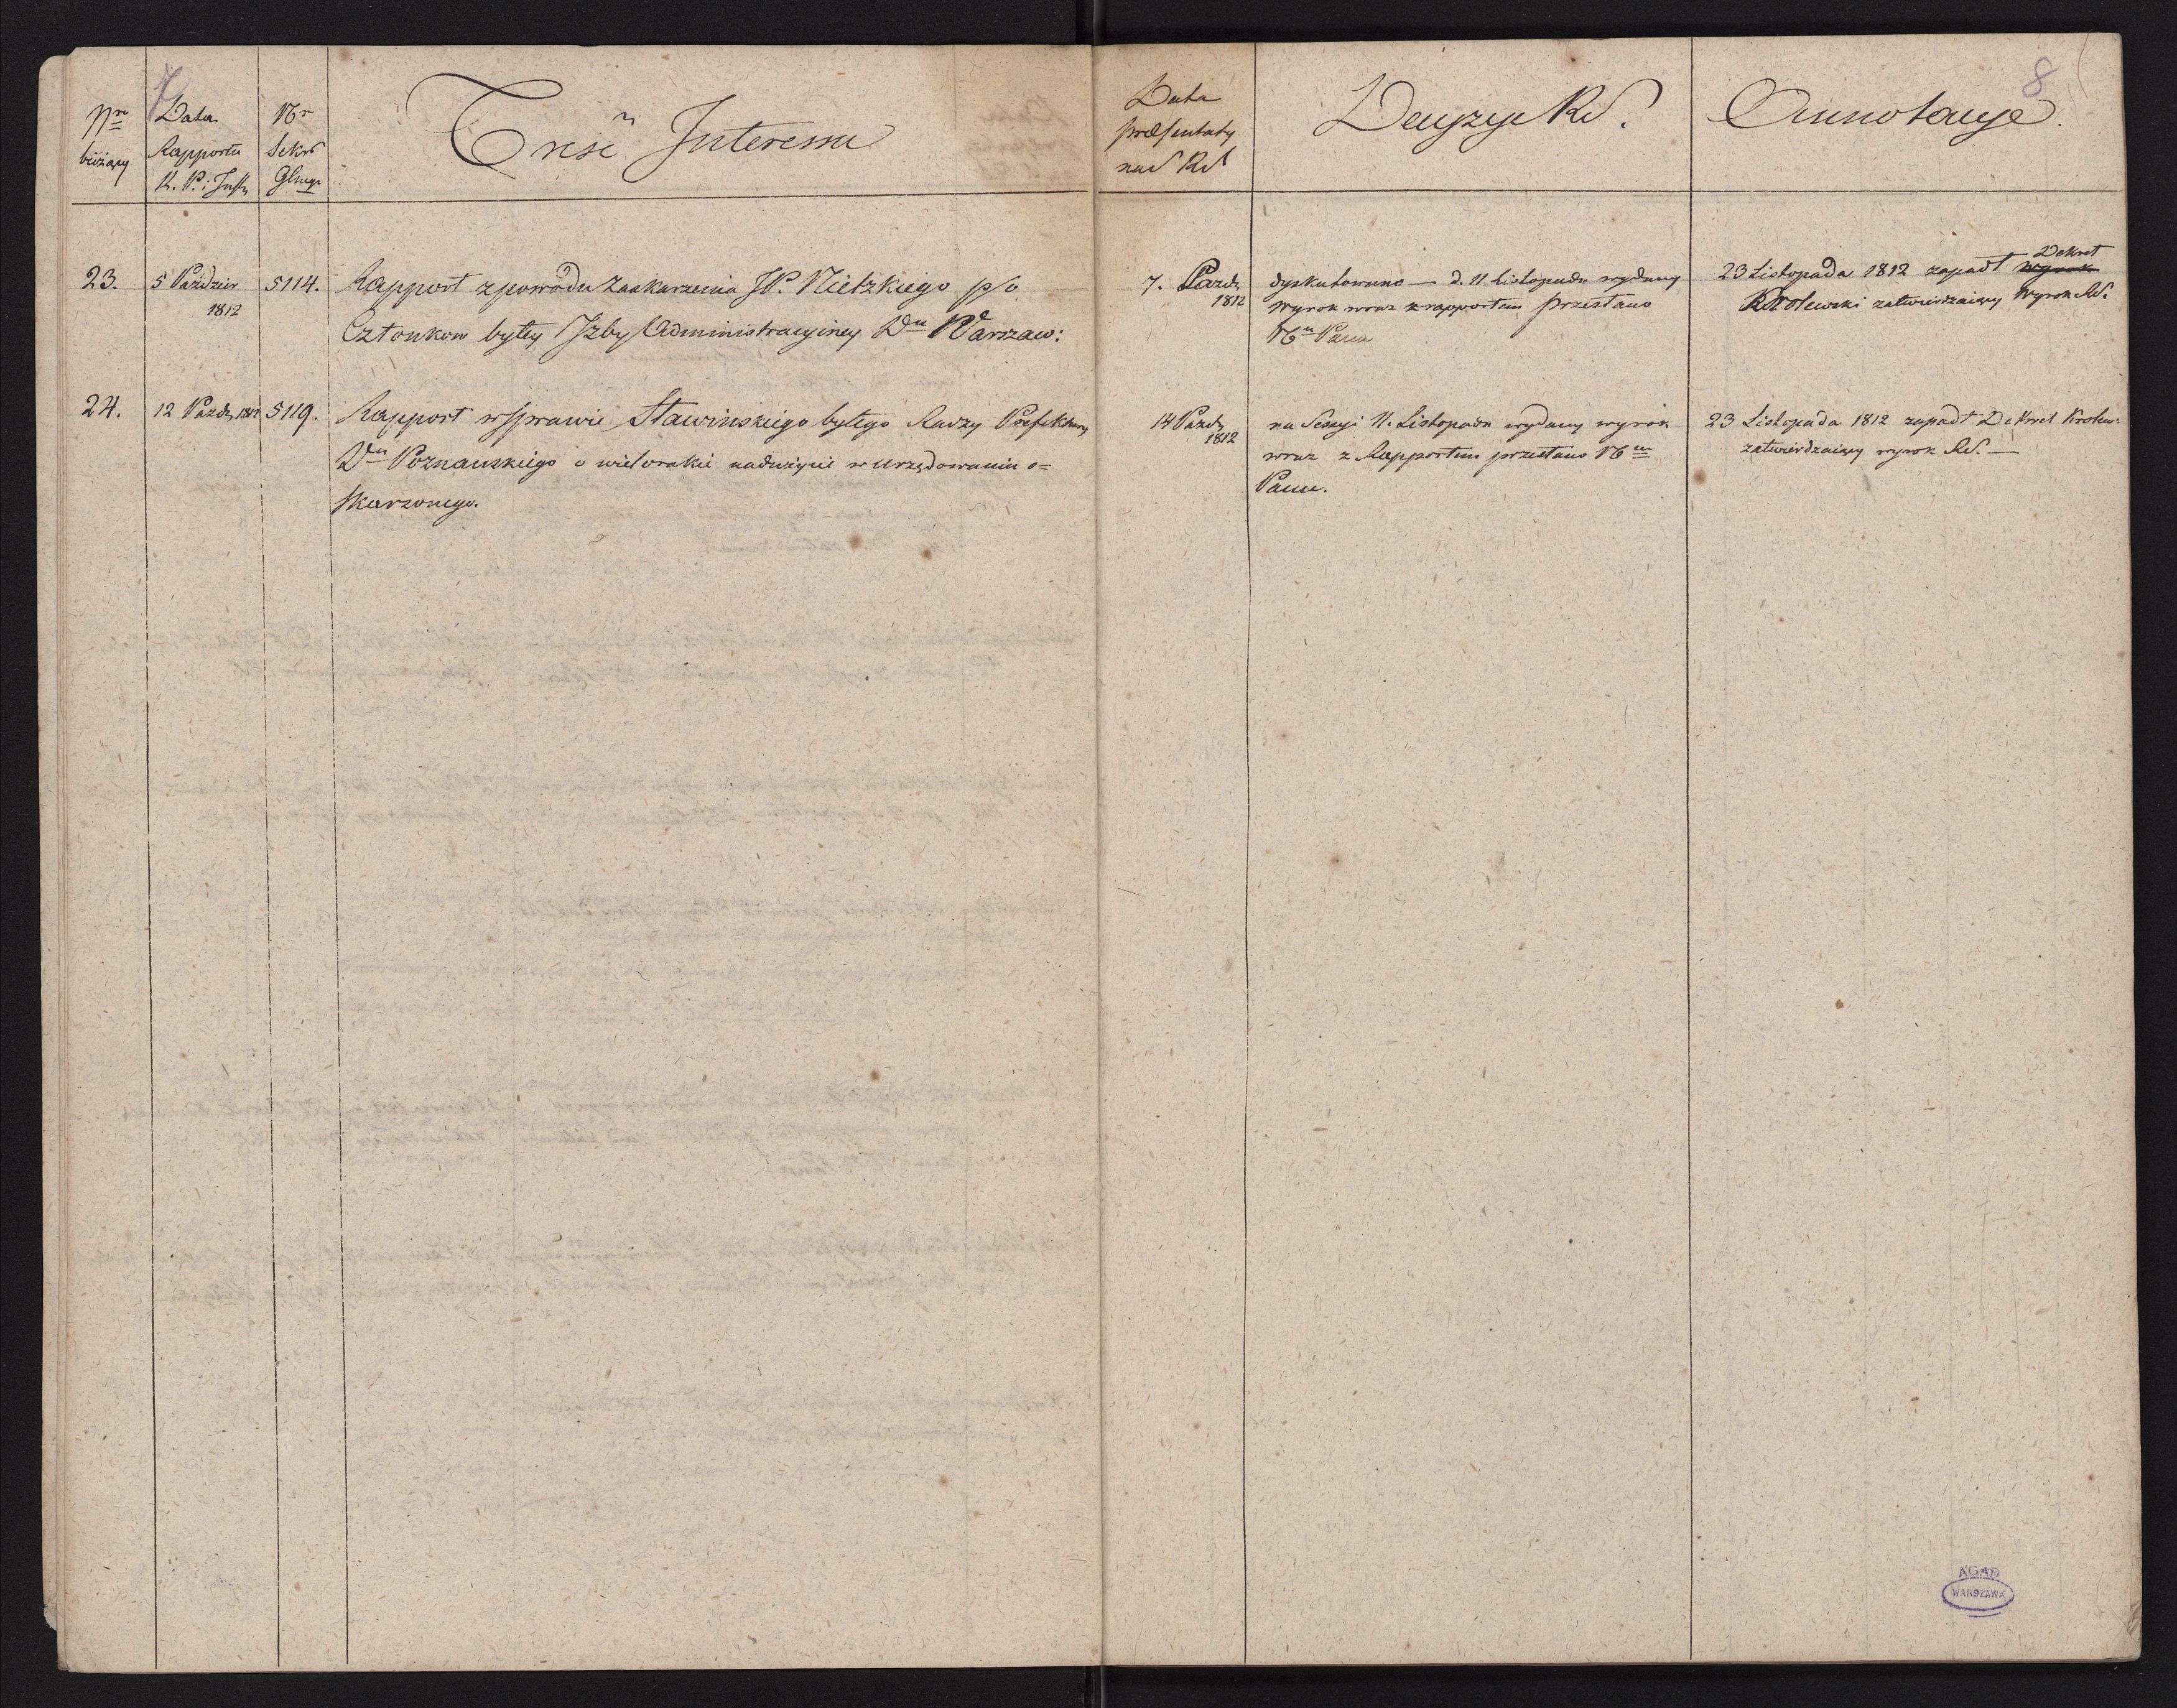 7
8
Nro
bieżący
Data
Rapportu
K. P. i Instr
Nr
Sekr
Glnego
Treść Interessu
Data
præsentaty
na RS
Decyzye RS.
Annotacye.
23.
5 Paździer
1812
5114.
Rapport z powodu Zaskarzenia JP. Nietzkiego p/o
Członkow byłey Jzby Administracyiney Du Warszaw:
7. Pazdr
1812
dyskutowano — d. 11 Listopada wydany
wyrok wraz z rapportem przesłano
Nu Panu
23 Listopada 1812 zapadł wyrok Dekret
Krolewski zatwierdzaiący wyrok RS.
24.
12 Pazdr 1812
5119.
Rapport w sprawie Sławinskiego byłego Radzy Prefektury
Du Poznanskiego o wielorakie nadużycie w urzędowaniu o=
skarzonego.
14 Pazdr
1812
na Sessyi 11. Listopada wydany wyrok
wraz z Rapportem przesłano Nu
Panu.
23 Listopada 1812 zapadł Dekret Krolew:
zatwierdzaiący wyrok RS. —
AGAD
WARSZAWA